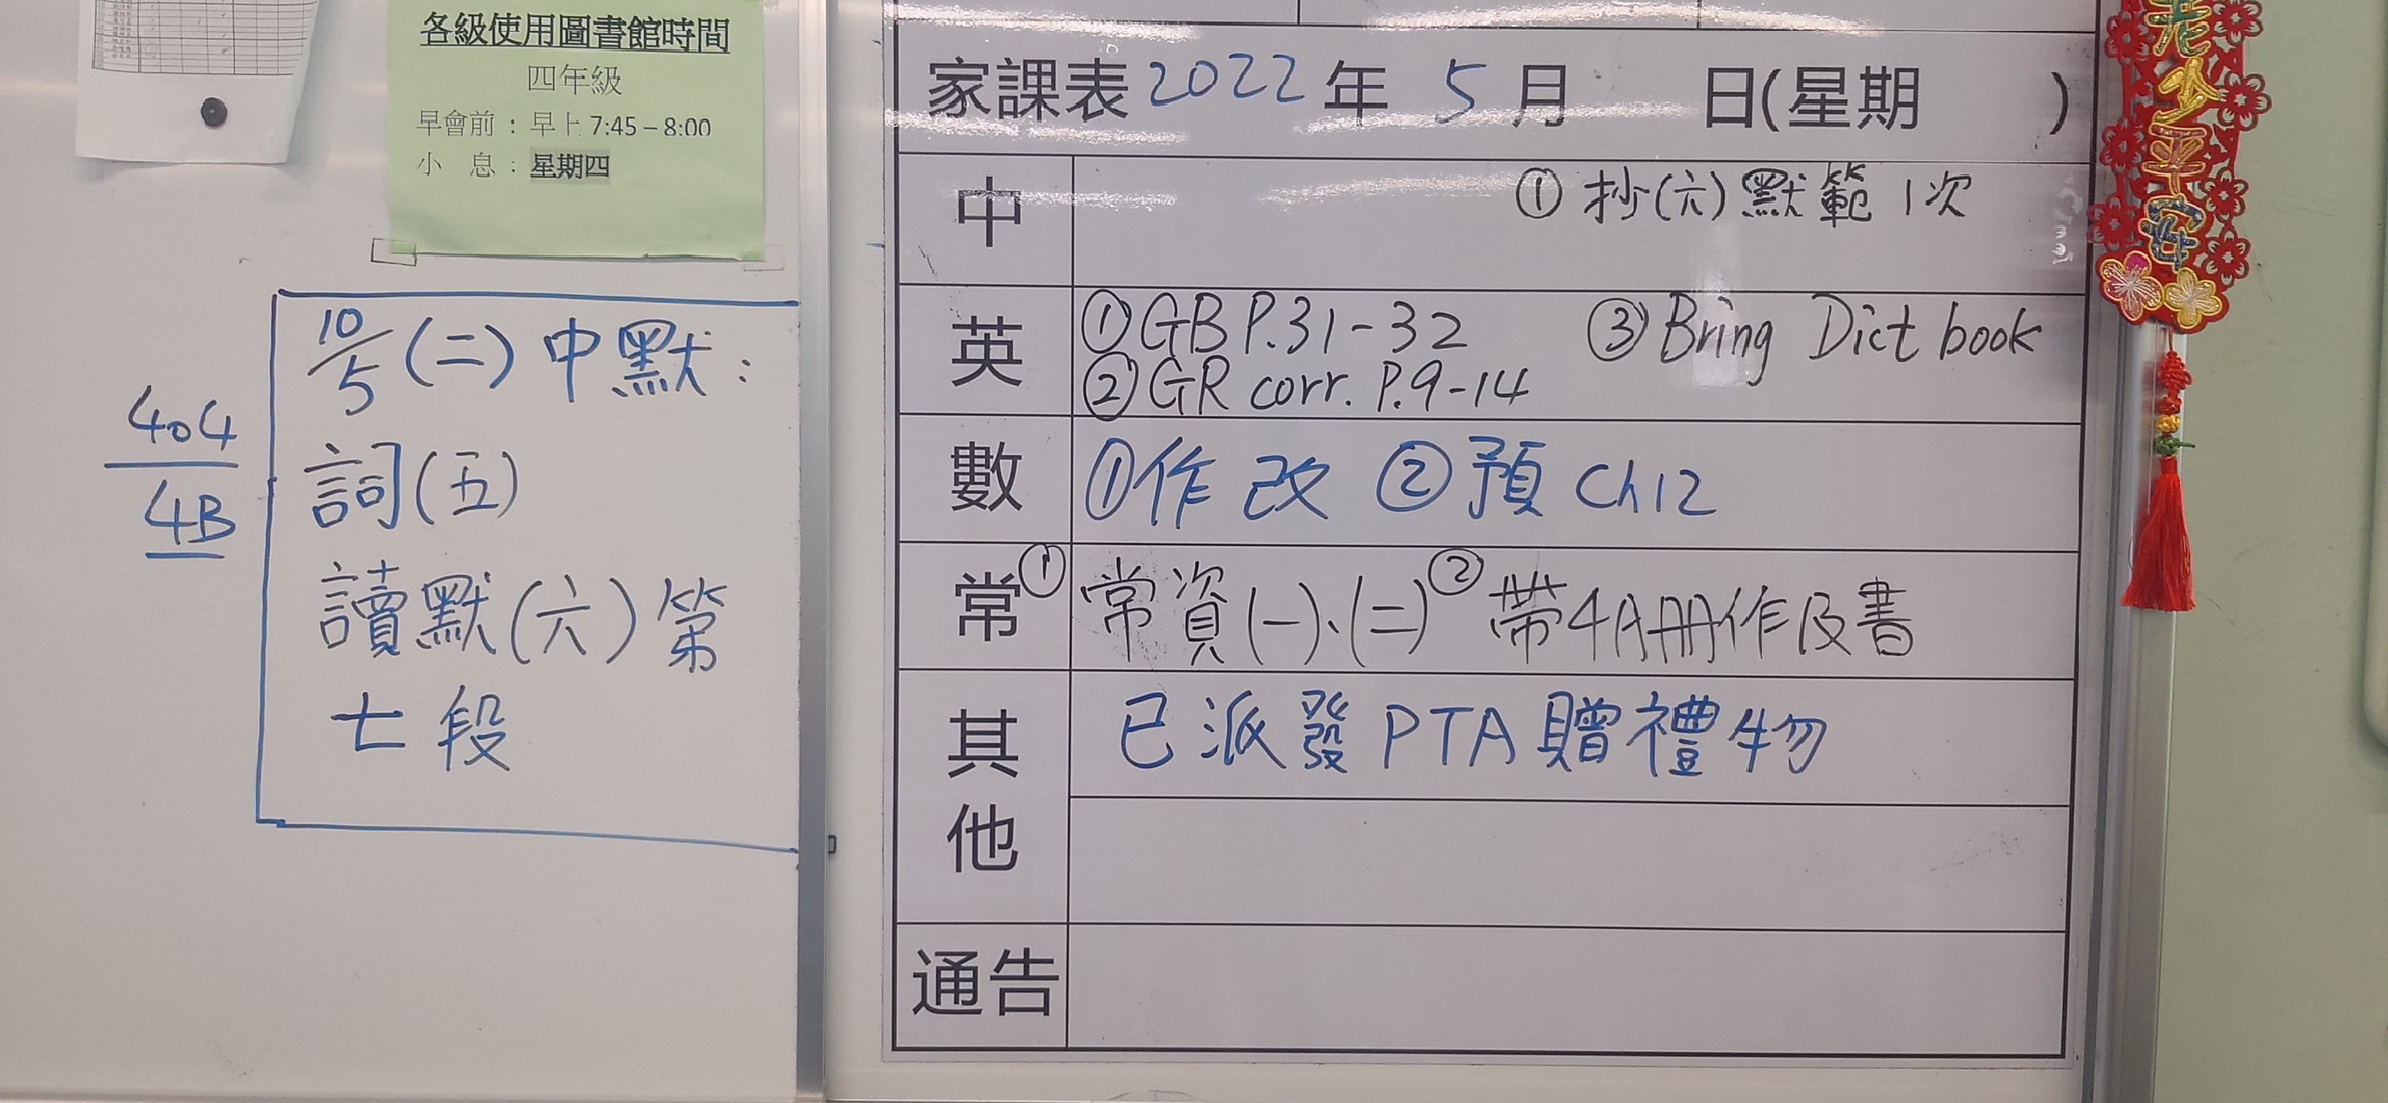 各級使用圖書館時間
四年級
早會前：早上 7:45 – 8:00
小 息：星期四
404
4B
10/5 (二) 中默：
詞(五)
讀默(六)第
七段
家課表 2022 年 5 月 日(星期 )
中 ① 抄(六)默範 1次
英 ① GB P.31-32 ③ Bring Dict book
② GR corr. P.9-14
數 ① 作改 ② 預 Ch12
常 ① 常資(一)、(二) ② 帶4A冊作及書
其他 已派發PTA贈禮物
通告
老少平安